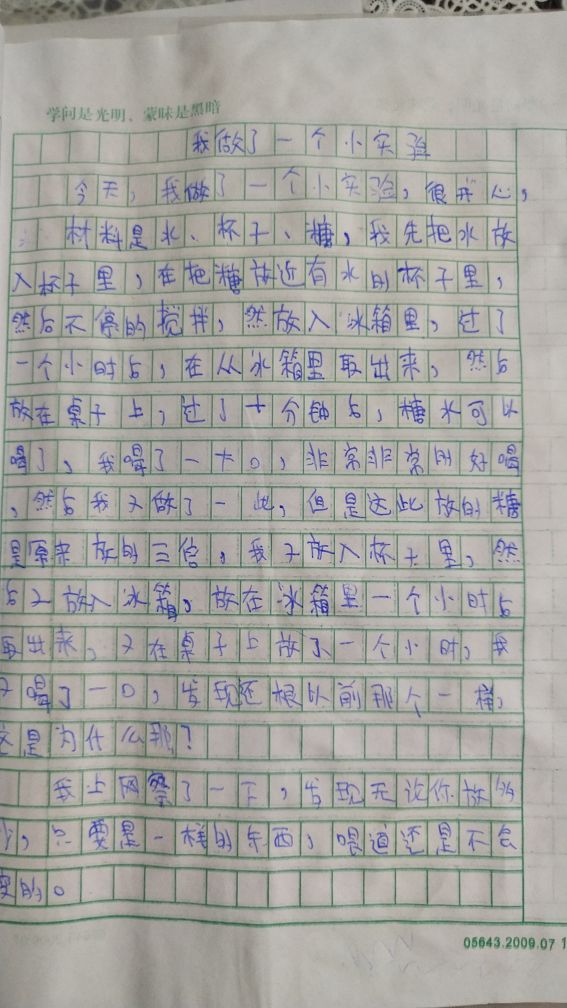 学问是光明、蒙昧是黑暗
我做了一个小实验
今天，我做了一个小实验，很开心，
材料是水、杯子、糖，我先把水放
入杯子里，在把糖放近有水的杯子里，
然后不停的搅拌，然放入冰箱里，过了
一个小时后，在从冰箱里取出来，然后
放在桌子上，过了十分钟后，糖水可以
喝了，我喝了一大口，非常非常的好喝
，然后我又做了一此，但是这此放的糖
是原来放的三倍，我子放入杯子里，然
后又放入冰箱，放在冰箱里一个小时后
取出来，又在桌子上放了一个小时，我
又喝了一口，发现还根以前那个一样，
这是为什么那？
我上网查了一下，发现无论你放多
少，只要是一样的东西，喂道还是不会
变的。
05643.2009.07